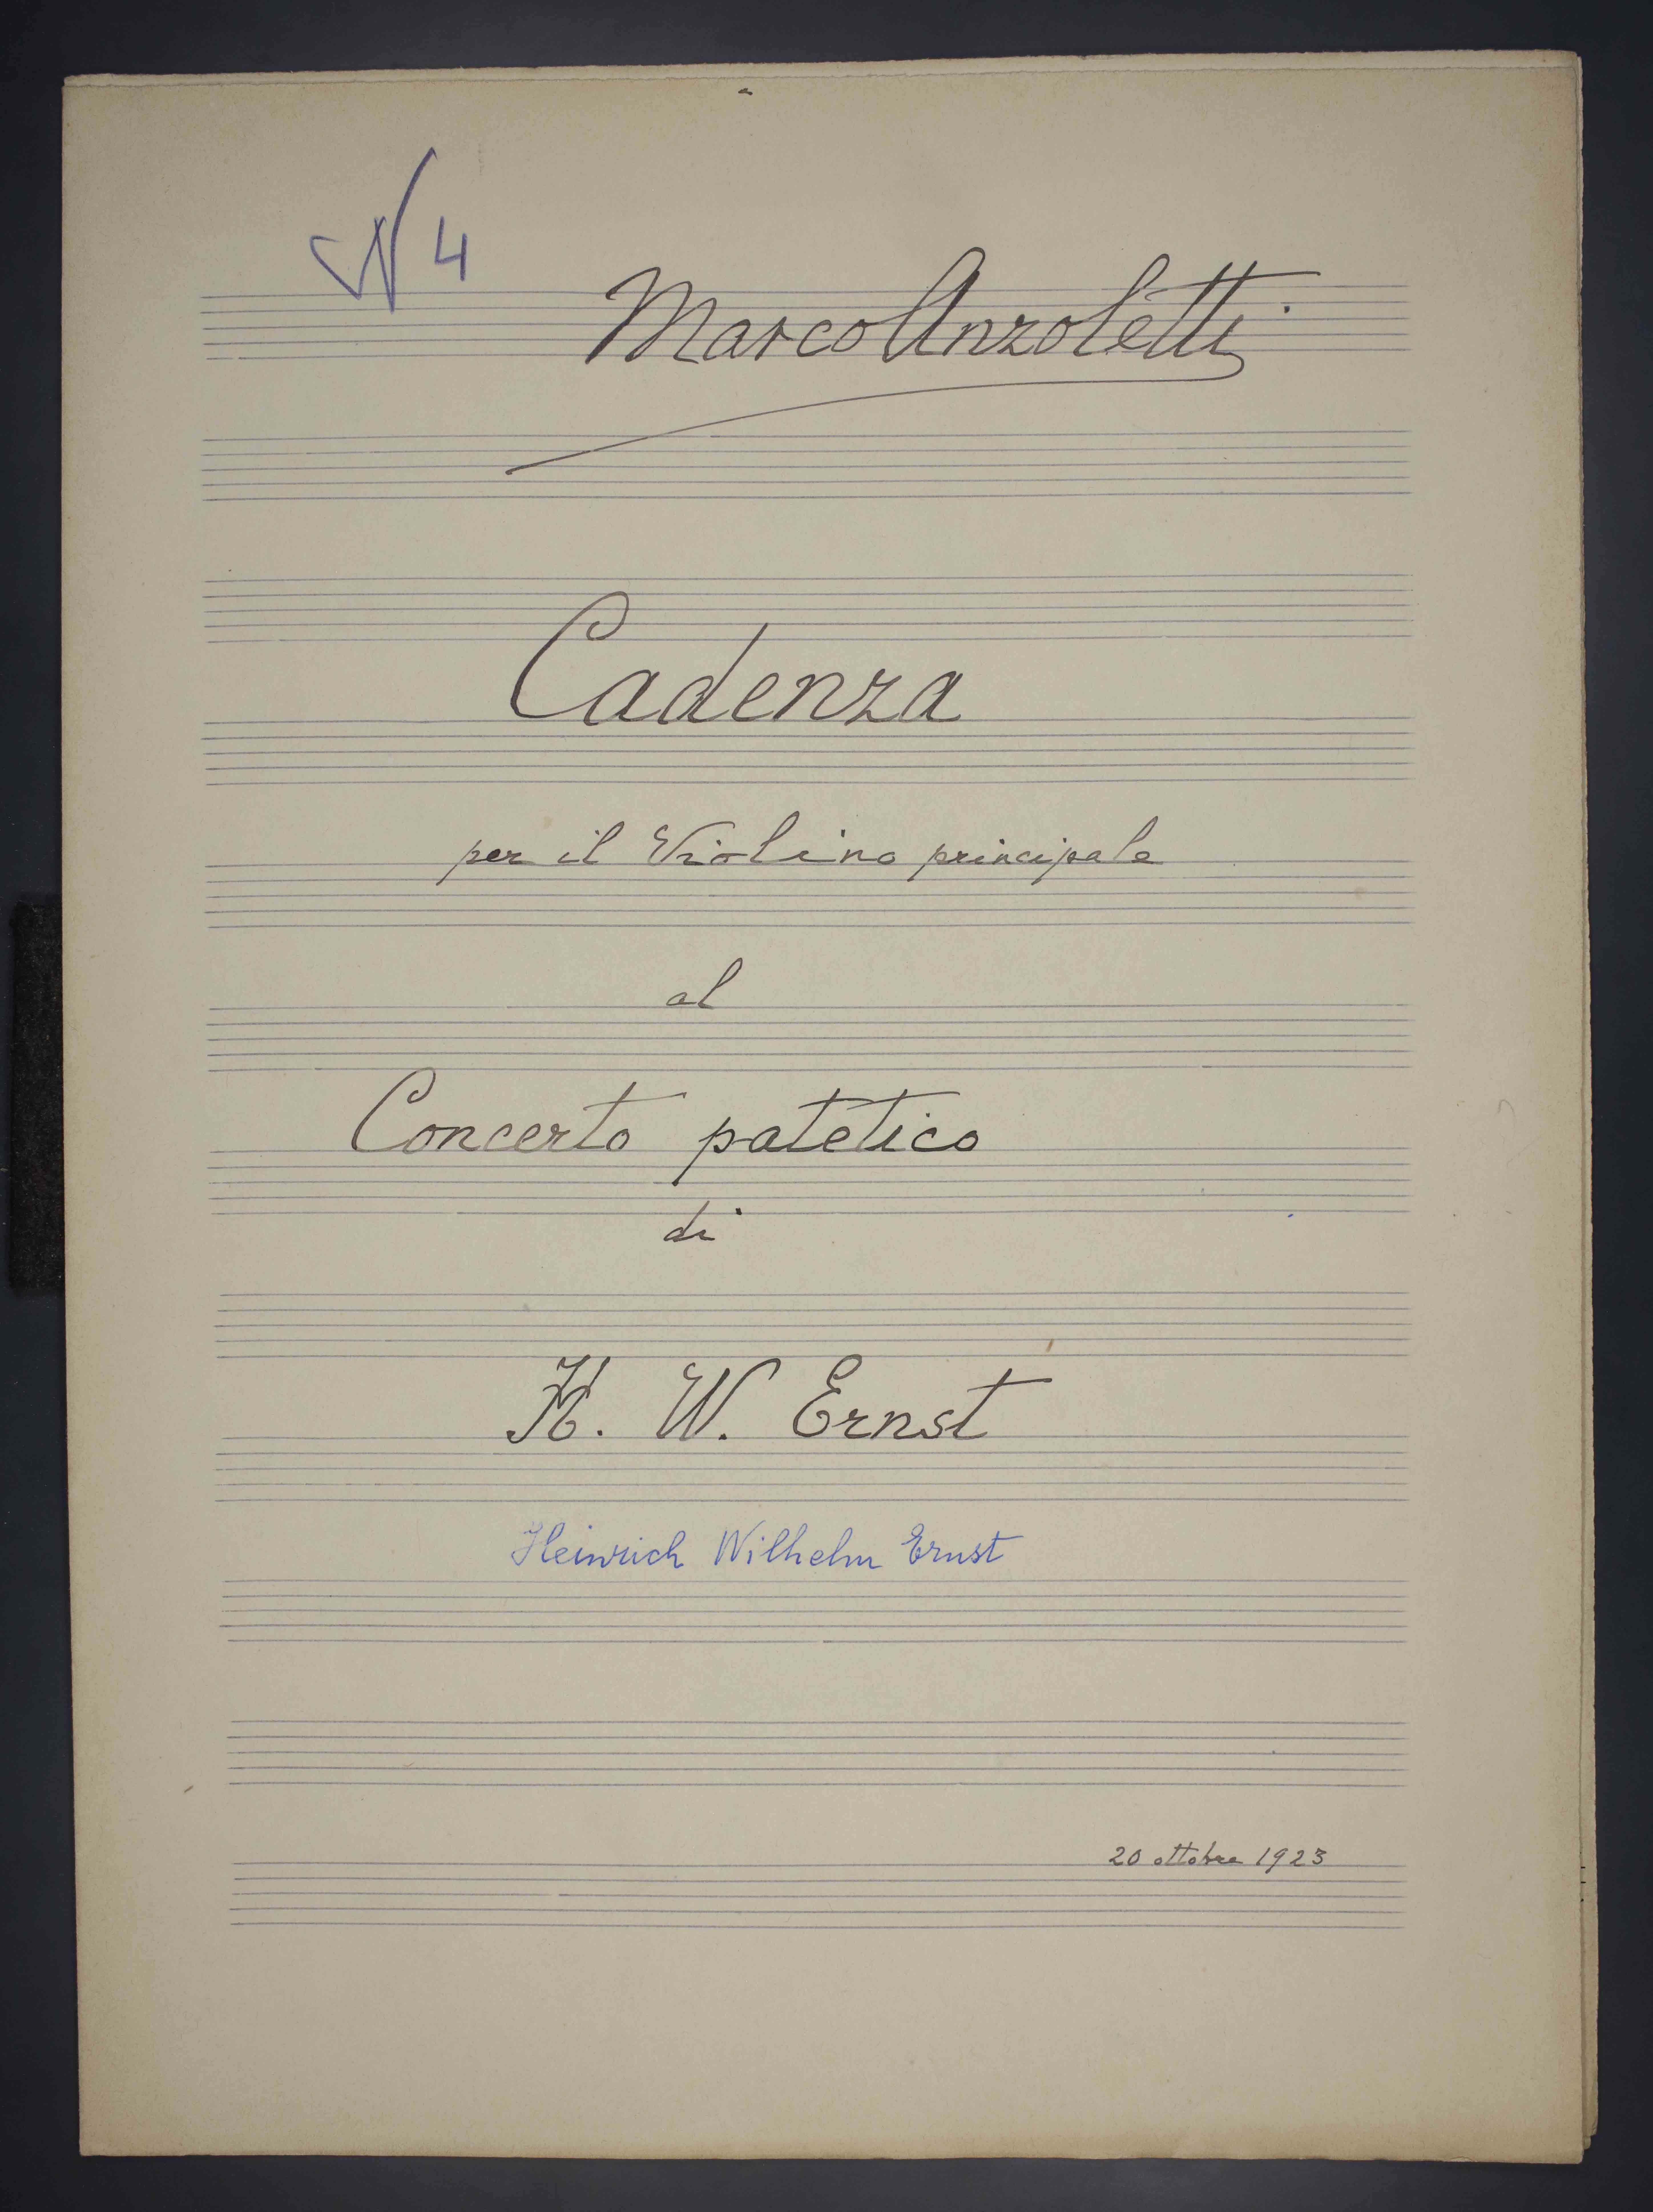 N 4
Marco Anzoletti
Cadenza
per il Violino principale
al
Concerto patetico
di
H. W. Ernst
Heinrich Wilhelm Ernst
20 ottobre 1923